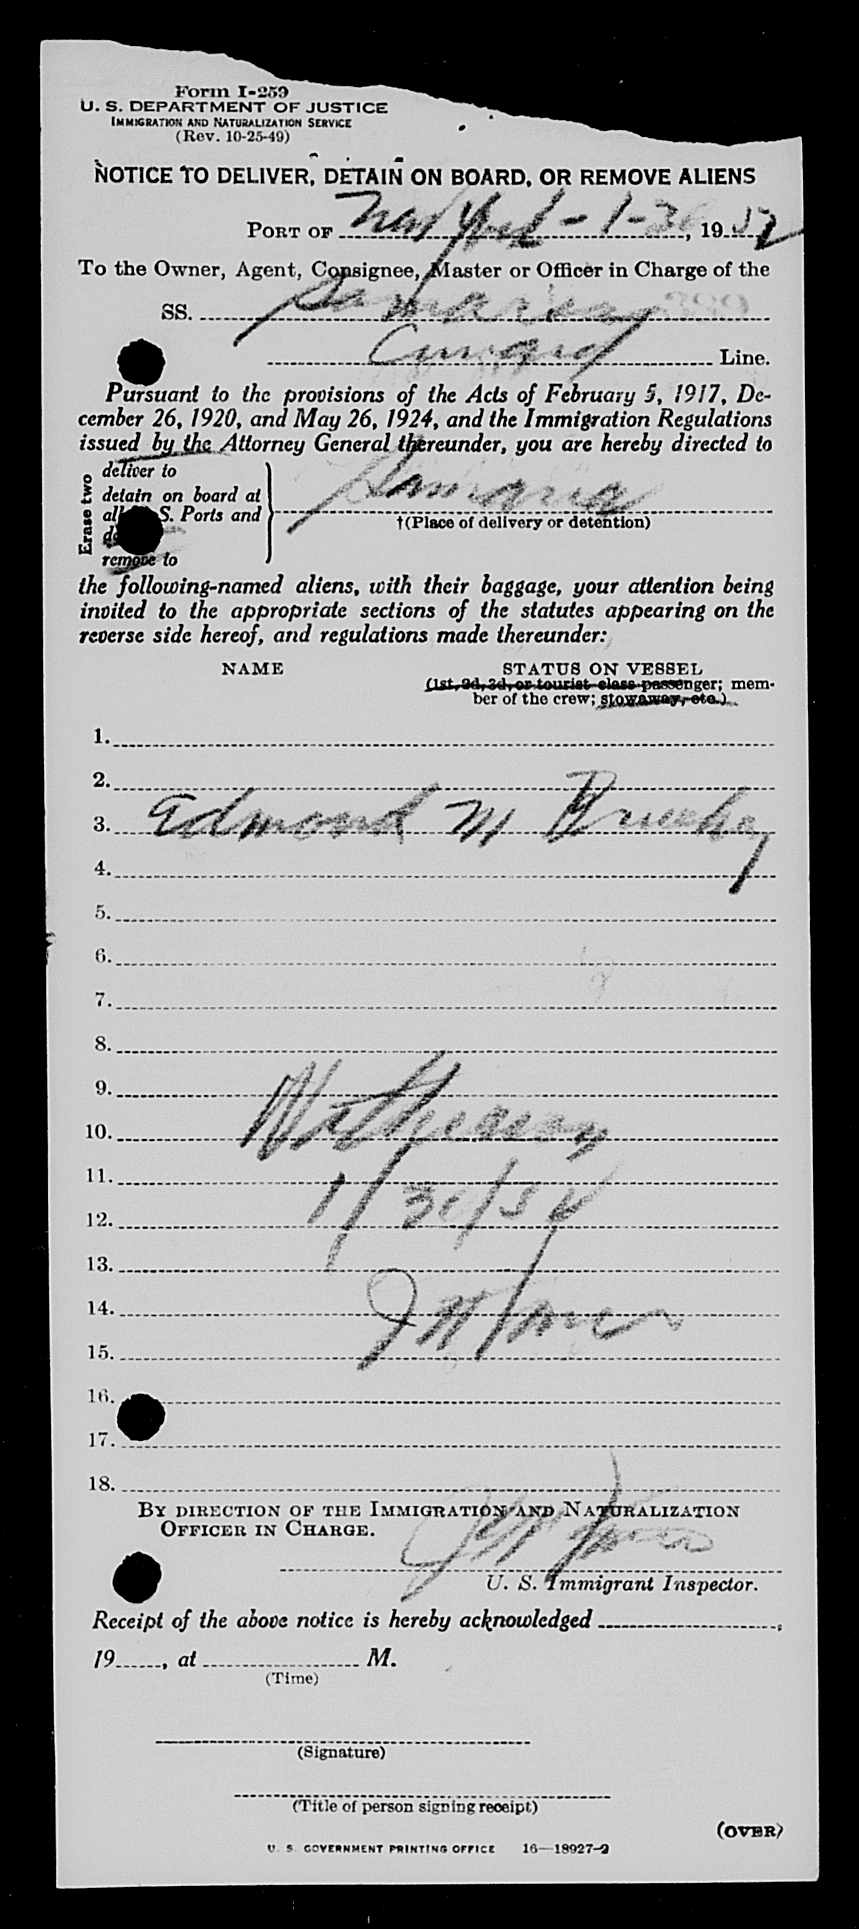 Form I-259
U. S. DEPARTMENT OF JUSTICE
IMMIGRATION AND NATURALIZATION SERVICE
(Rev. 10-25-49)
NOTICE TO DELIVER, DETAIN ON BOARD, OR REMOVE ALIENS
PORT OF New York - 1-30, 1952
To the Owner, Agent, Consignee, Master or Officer in Charge of the
SS. Samaria
Cunard Line.
Pursuant to the provisions of the Acts of February 5, 1917, De-
cember 26, 1920, and May 26, 1924, and the Immigration Regulations
issued by the Attorney General thereunder, you are hereby directed to
Erase two
deliver to
detain on board at
all S. Ports and
remove to
Samaria
†(Place of delivery or detention)
the following-named aliens, with their baggage, your attention being
invited to the appropriate sections of the statutes appearing on the
reverse side hereof, and regulations made thereunder:
NAME STATUS ON VESSEL
(1st, 2d, 3d, or tourist class passenger; mem-
ber of the crew; stowaway, etc.)
1.
2.
3. Edmond M
4.
5.
6.
7.
8.
9.
10.
11.
12. 1/30/52
13.
14.
15.
16.
17.
18.
BY DIRECTION OF THE IMMIGRATION AND NATURALIZATION
OFFICER IN CHARGE.
U. S. Immigrant Inspector.
Receipt of the above notice is hereby acknowledged ,
19 , at M.
(Time)
(Signature)
(Title of person signing receipt)
(OVER)
U. S. GOVERNMENT PRINTING OFFICE 16—18927-2